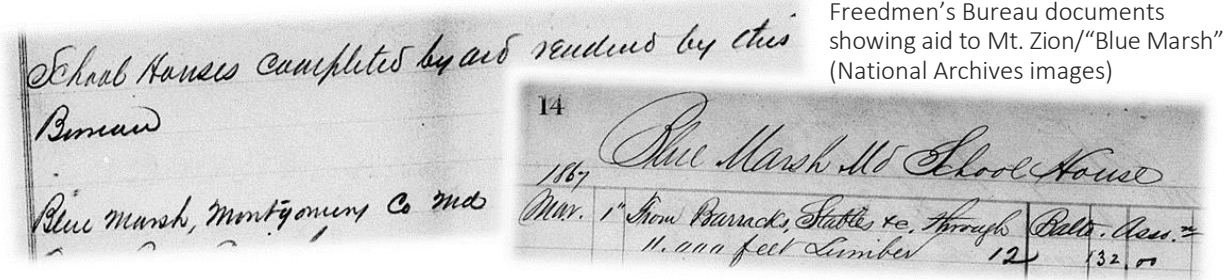 School Houses completed by aid rendered by this
Bureau
Blue Marsh, Montgomery Co Md
Freedmen’s Bureau documents
showing aid to Mt. Zion/“Blue Marsh”
(National Archives images)
14
Blue Marsh Md School House
1867
Mar. 1" From Barracks, Stables &c. through Balto. Assn.
11.000 feet Lumber 12 132.00